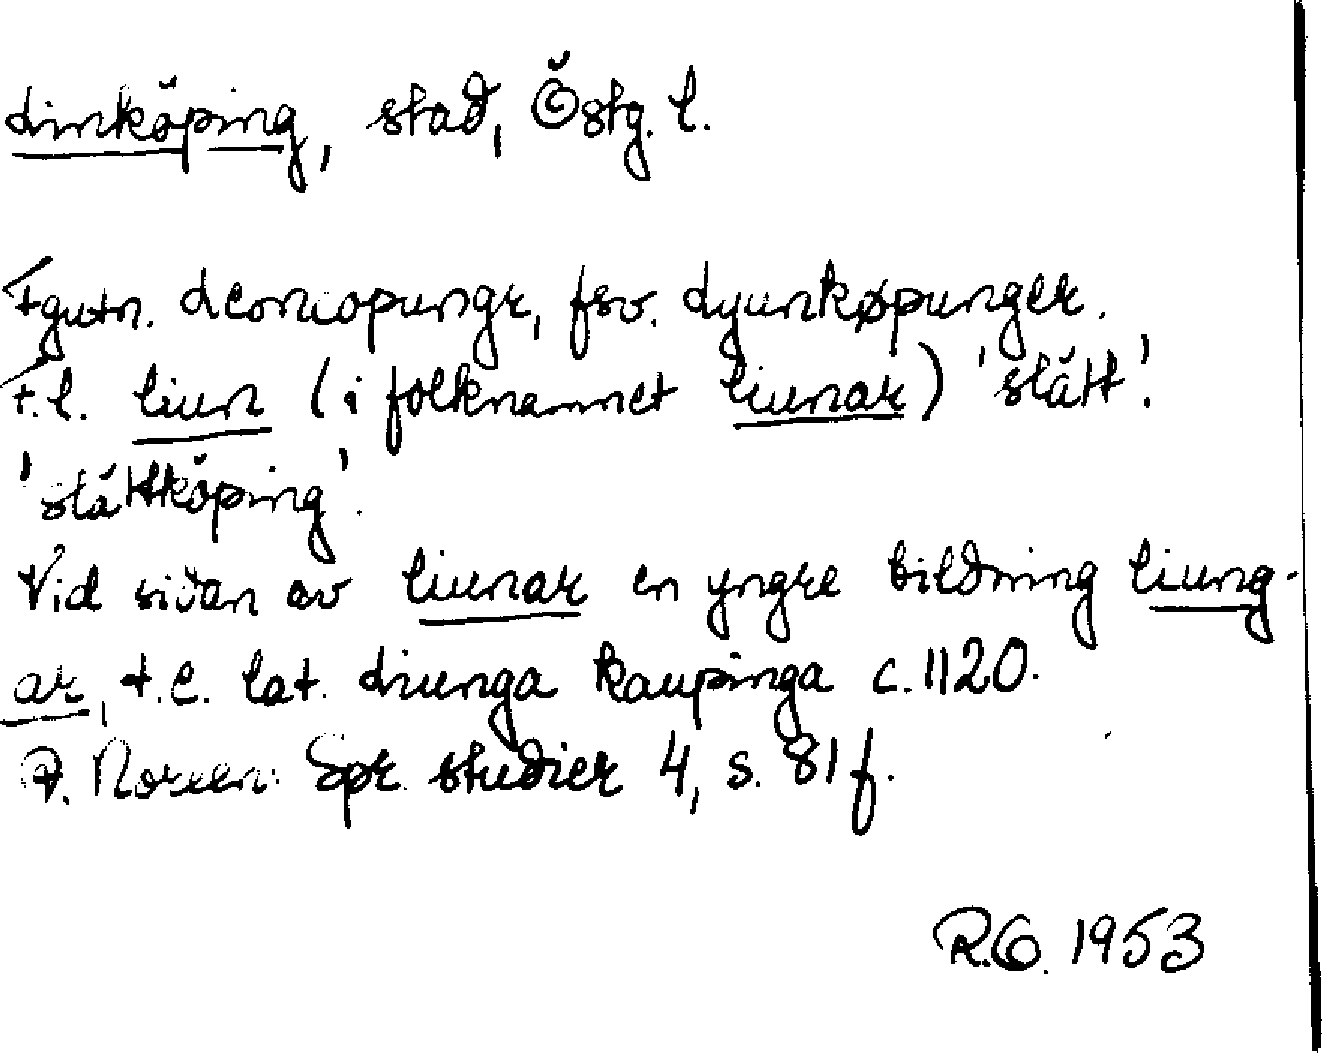 Linköping, stad, Östg. l.
Fgutn. Leoncopungr, fsv. Lyunkøpunger.
F.l. liun (i folknamnet liunar) 'slätt'.
'slättköping'.
Vid sidan av liunar en yngre bildning liung-
ar, t.e. lat. Liunga Kaupinga c. 1120.
A. Noreen: Spr. studier 4, s. 81 f.
R.G. 1953